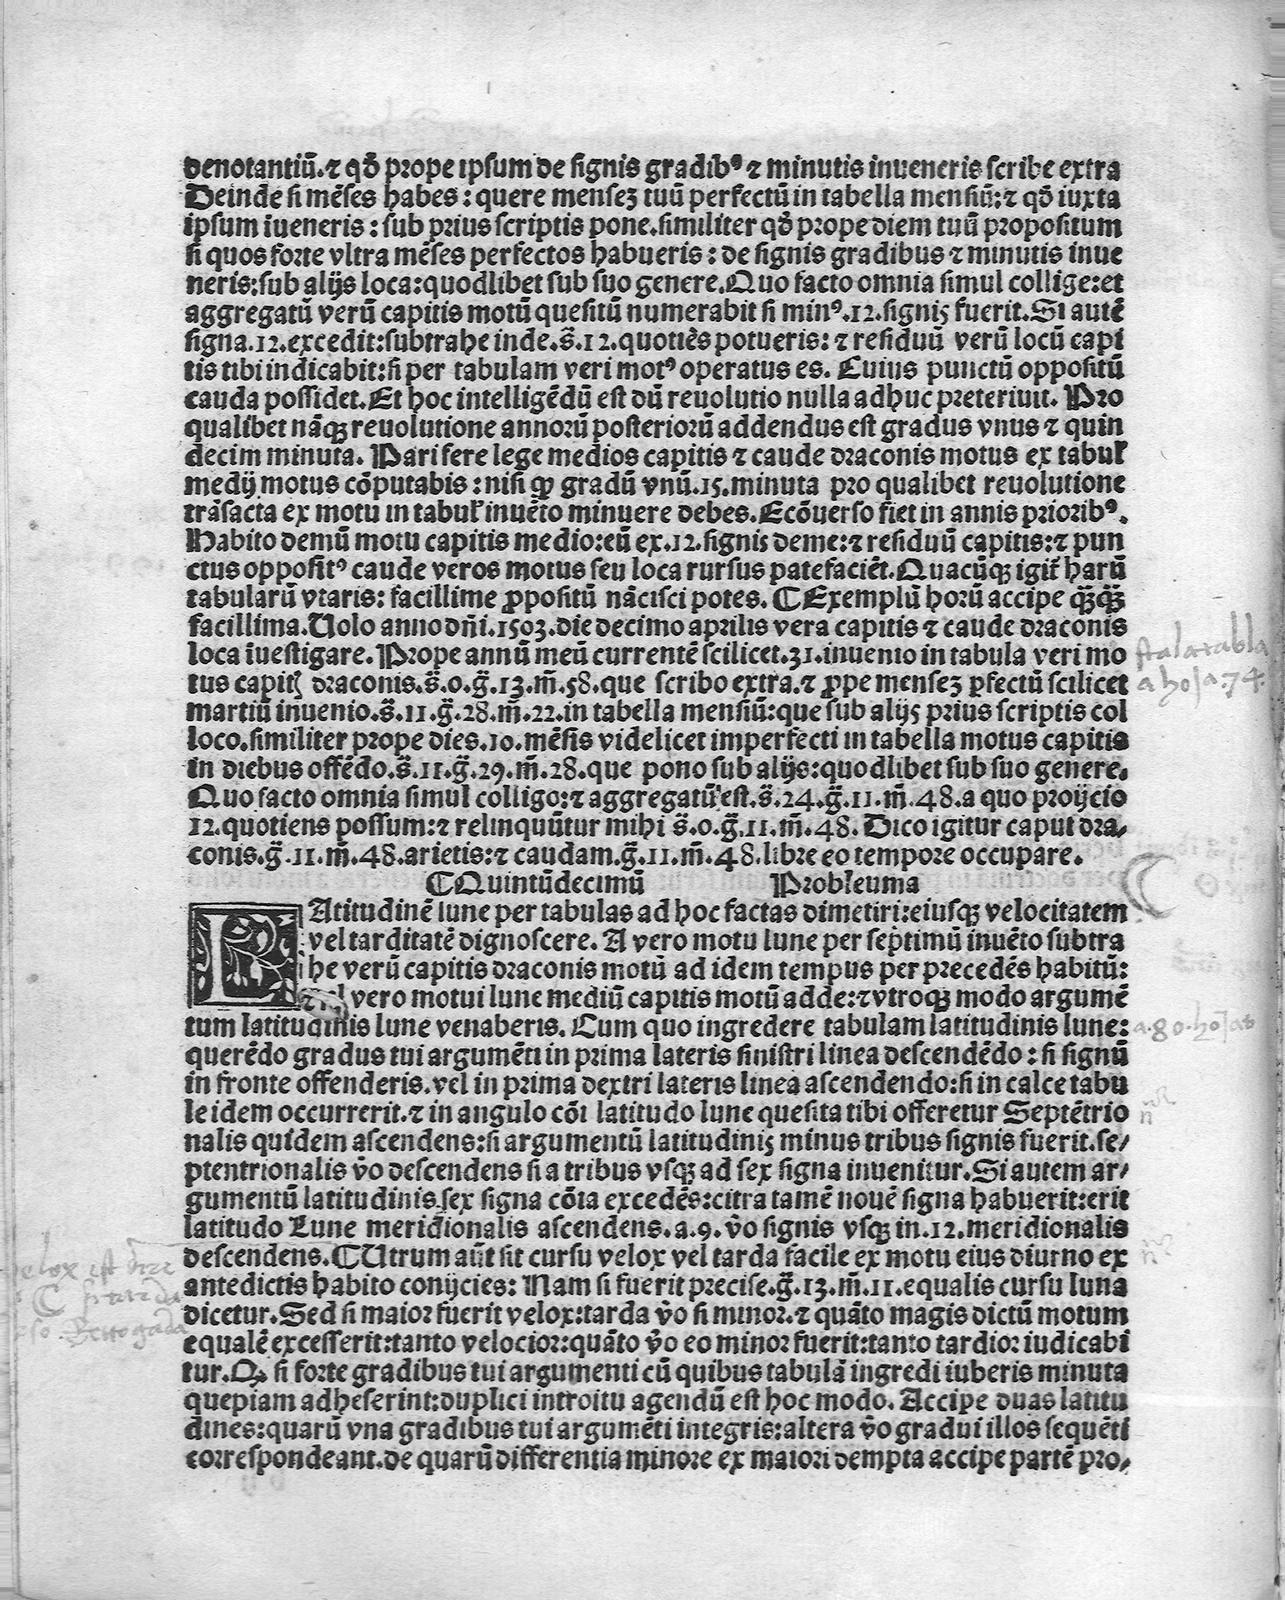 denotantiū.⁊ qđ prope ipsum de signis gradibꝰ ⁊ minutis inueneris scribe extra
Deinde si mēses habes : quere mensez tuū perfectū in tabella mensiū:⁊ qđ iuxta
ipsum īueneris : sub prius scriptis pone.similiter qđ prope diem tuū propositum
si quos forte vltra mēses perfectos habueris : de signis gradibus ⁊ minutis inue
neris:sub alijs loca:quodlibet sub suo genere.Quo facto omnia simul collige:et
aggregatū verū capitis motū quesitū numerabit si minꝰ.12.signis fuerit.Si autē
signa.12.excedit:subtrahe inde.s̄.12.quotiēs potueris: ⁊ residuū verū locū capi
tis tibi indicabit:si per tabulam veri motꝰ operatus es. Cuius punctū oppositū
cauda possidet.Et hoc intelligēdū est dū reuolutio nulla adhuc preteriuit. Pro
qualibet nāqꝫ reuolutione annorū posteriorū addendus est gradus vnus ⁊ quin
decim minuta. Pari fere lege medios capitis ⁊ caude draconis motus ex tabuł
medij motus cōputabis : nisi ꝙ gradū vnū.15.minuta pro qualibet reuolutione
trāsacta ex motu in tabuł inuēto minuere debes.Ecōuerso fiet in annis prioribꝰ.
Habito demū motu capitis medio:eū ex.12.signis deme:⁊ residuū capitis:⁊ pun
ctus oppositꝰ caude veros motus seu loca rursus patefaciēt.Quacūqꝫ igit̄ harū
tabularū vtaris: facillime ꝓpositū nācisci potes. ¶Exemplū horū accipe q̄ꝫq̄ꝫ
facillima.Uolo anno dn̄i.1503.die decimo aprilis vera capitis ⁊ caude draconis
loca īuestigare. Prope annū meū currentē scilicet.31.inuenio in tabula veri mo
tus capitꝭ draconis.s̄.0.ḡ.13.m̄.58.que scribo extra.⁊ ꝓpe mensez ꝑfectū scilicet
martiū inuenio.s̄.11.ḡ.28.m̄.22.in tabella mensiū:que sub alijs prius scriptis col
loco.similiter prope dies.10.mēsis videlicet imperfecti in tabella motus capitis
in diebus offēdo.s̄.11.ḡ.29.m̄.28.que pono sub alijs:quodlibet sub suo genere.
Quo facto omnia simul colligo:⁊ aggregatū est.s̄.24.ḡ.11.m̄.48.a quo proijcio
12.quotiens possum:⁊ relinquūtur mihi s̄.0.ḡ.11.m̄.48. Dico igitur caput dra⸗
conis.ḡ.11.m̄.48.arietis:⁊ caudam.ḡ.11.m̄.48.libre eo tempore occupare.
¶Quintūdecimū Probleuma
LAtitudinē lune per tabulas ad hoc factas dimetiri:eiusqꝫ velocitatem
vel tarditatē dignoscere. A vero motu lune per septimū inuēto subtra
he verū capitis draconis motū ad idem tempus per precedēs habitū:
vero motui lune mediū capitis motū adde:⁊ vtroqꝫ modo argumē
tum latitudinis lune venaberis. Cum quo ingredere tabulam latitudinis lune:
querēdo gradus tui argumēti in prima lateris sinistri linea descendēdo : si signū
in fronte offenderis.vel in prima dextri lateris linea ascendendo:si in calce tabu
le idem occurrerit.⁊ in angulo cōi latitudo lune quesita tibi offeretur Septētrio
nalis quidem ascendens:si argumentū latitudinis minus tribus signis fuerit.se⸗
ptentrionalis v̄o descendens si a tribus vsqꝫ ad sex signa inuenitur.Si autem ar⸗
gumentū latitudinis sex signa cōta excedēs:citra tamē nouē signa habuerit:erit
latitudo Lune meridionalis ascendens.a.9.v̄o signis vsqꝫ in.12.meridionalis
descendens.¶Utrum aūt sit cursu velox vel tarda facile ex motu eius diurno ex
antedictis habito conijcies: Nam si fuerit precise.ḡ.13.m̄.11.equalis cursu luna
dicetur.Sed si maior fuerit velox:tarda v̄o si minor.⁊ quāto magis dictū motum
equalē excesserit:tanto velocior:quāto v̄o eo minor fuerit:tanto tardior iudicabi
tur.Qꝫ si forte gradibus tui argumenti cū quibus tabulā ingredi iuberis minuta
quepiam adheserint:duplici introitu agendū est hoc modo. Accipe duas latitu
dines:quarū vna gradibus tui argumēti integris:altera v̄o gradui illos sequēti
correspondeant.de quarū differentia minore ex maiori dempta accipe partē pro⸗